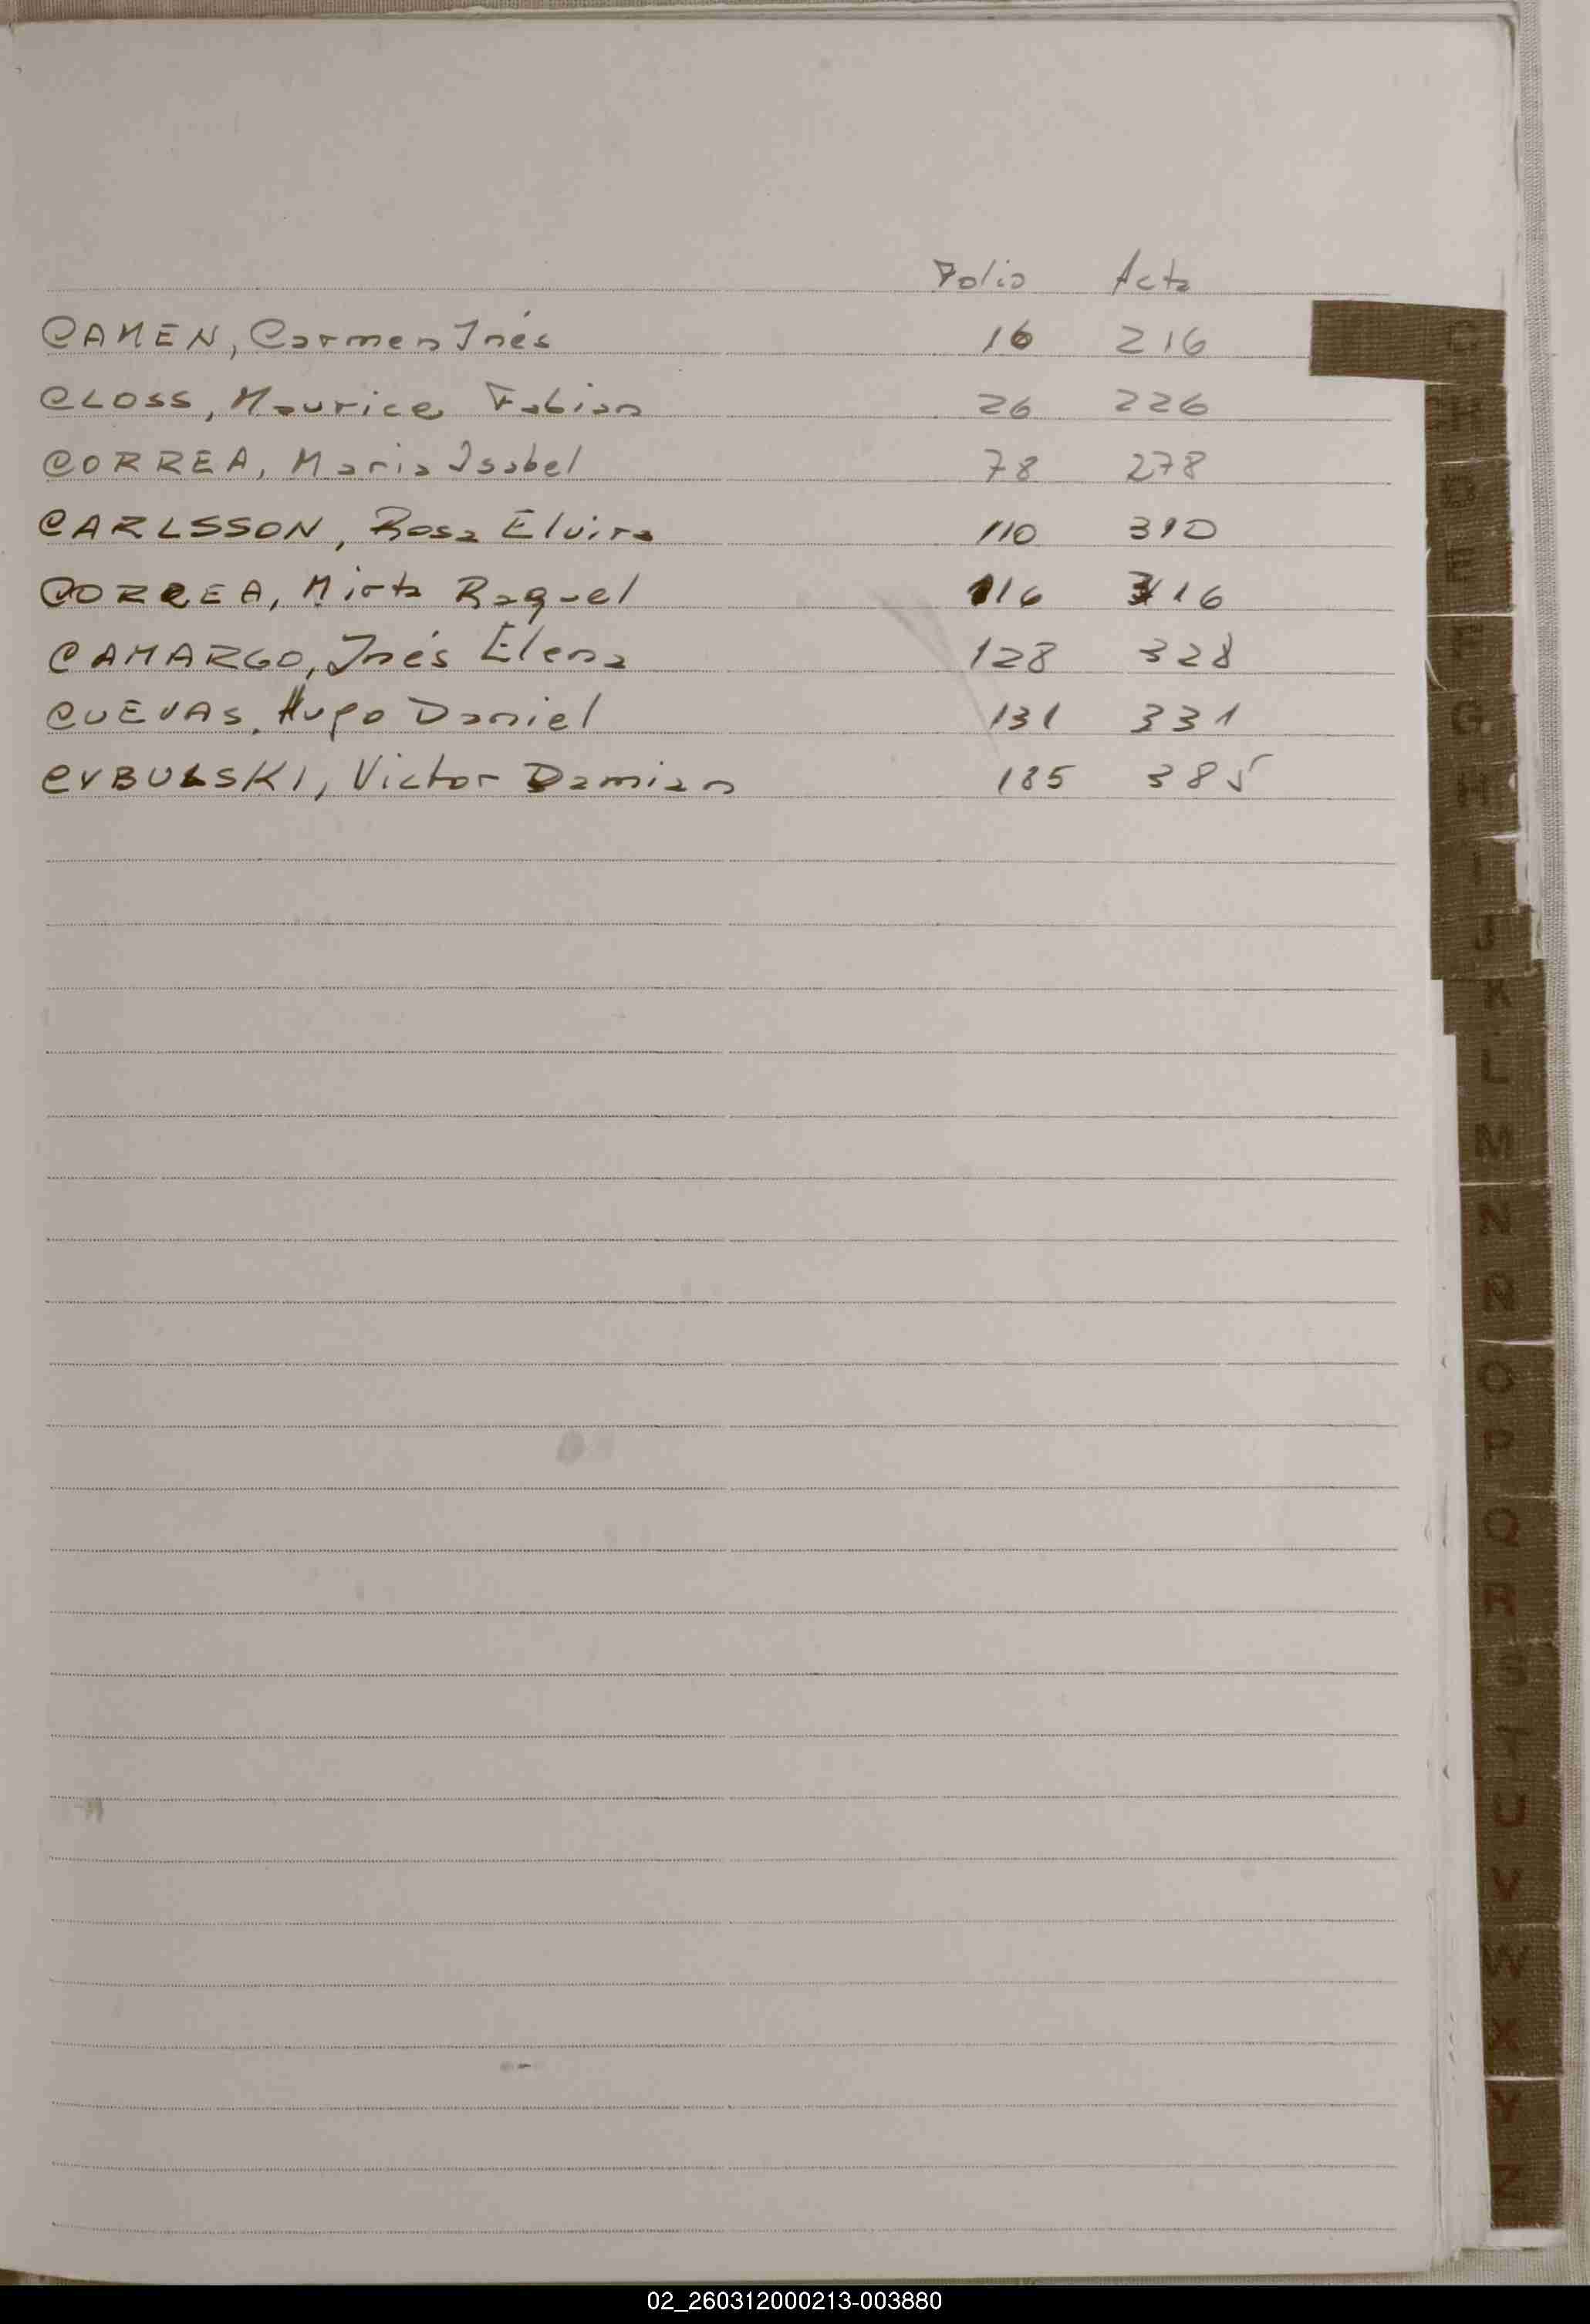 Folio Acta
CAMEN, Carmen Inés 16 216
CLOSS, Maurice Fabian 26 226
CORREA, Maria Isabel 78 278
CARLSSON, Rosa Elvira 110 310
CORREA, Mirta Raquel 116 316
CAMARGO, Inés Elena 128 328
CUEVAS, Hugo Daniel 131 331
CYBULSKI, Victor Damian 185 385
C
D
E
F
G
H
I
J
K
L
M
N
Ñ
O
P
Q
R
S
T
U
V
W
X
Y
Z
02_260312000213-003880